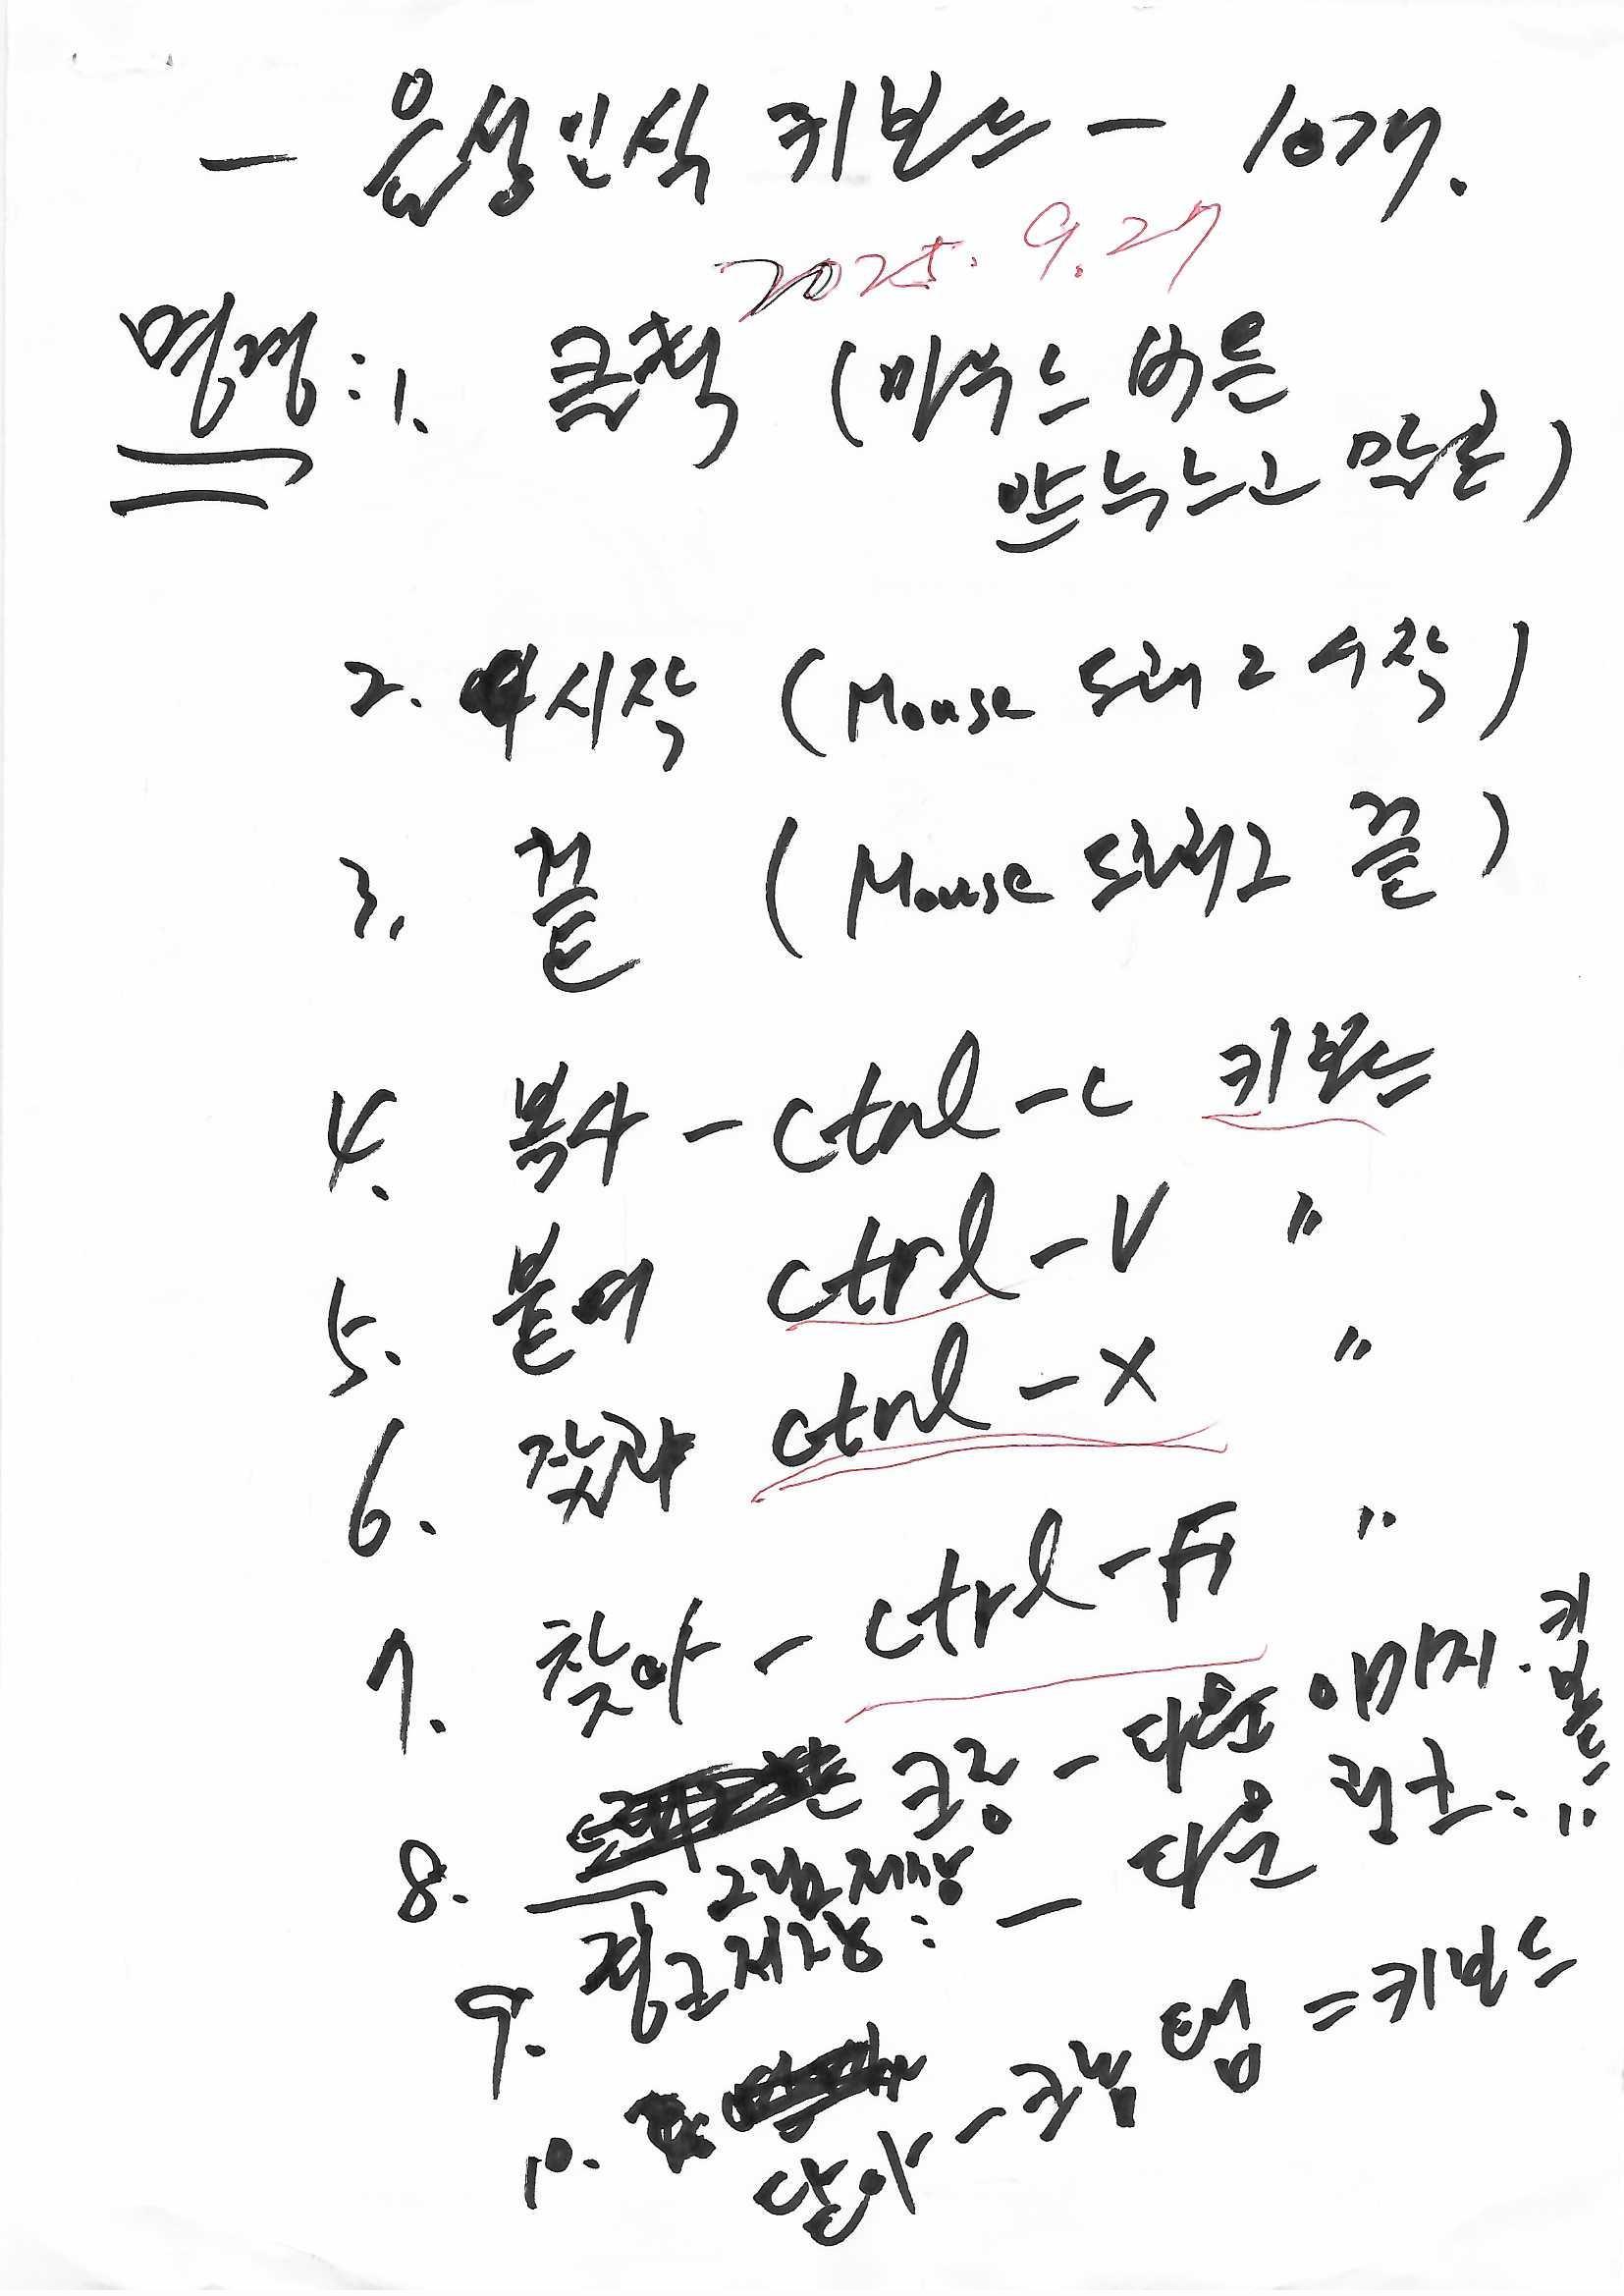 - 음성인식 키보드 - 10개.
2025. 9. 27
명령 : 1. 클릭 (마우스 버튼
안누르고 말로)
2. 시작 (Mouse 드래그 시작)
3. 끝 (Mouse 드래그 끝)
4. 복사 - Ctrl - C 키보드
5. 붙여 Ctrl - V "
6. 잘라 Ctrl - X "
7. 찾아 - Ctrl - F "
8. 크롬 - 다운 이미지. 키보드
그림저장
9. 링크저장 : - 다운 링크 : "
10. 닫아 - 크롬 탭 = 키보드